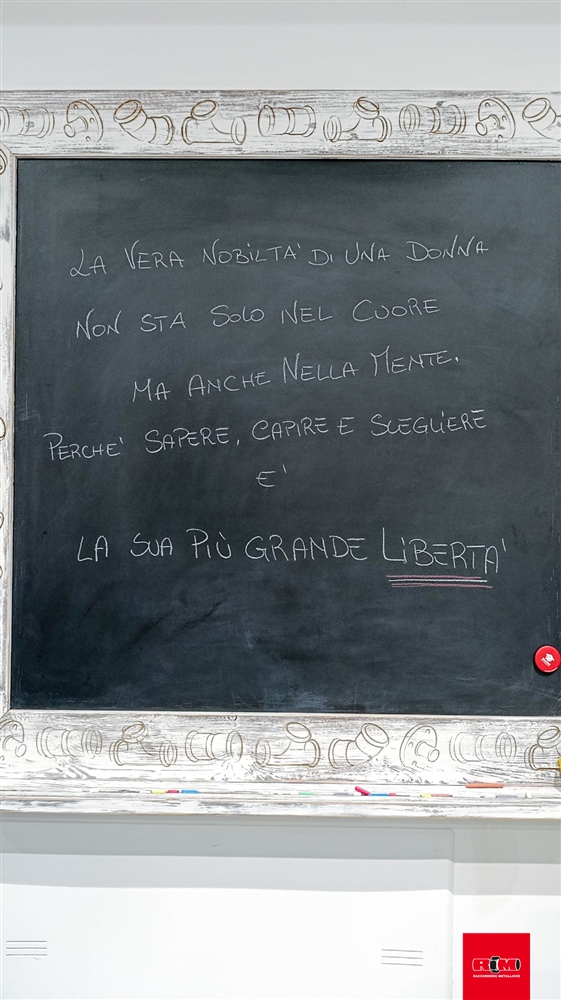 LA VERA NOBILTA' DI UNA DONNA
NON STA SOLO NEL CUORE
MA ANCHE NELLA MENTE.
PERCHE' SAPERE, CAPIRE E SCEGLIERE
E'
LA SUA PIÙ GRANDE LIBERTA'
RIM
RACCORDERIE METALLICHE